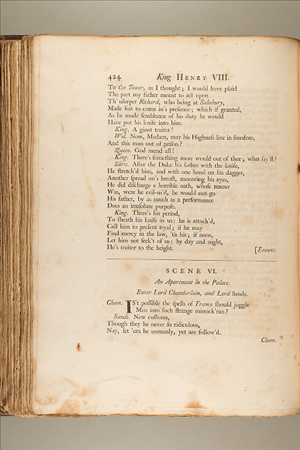 424 King HENRY VIII.
To the Tower, as I thought; I would have plaid
The part my father meant to act upon
Th' usurper Richard, who being at Salisbury,
Made suit to come in's presence; which if granted,
As he made semblance of his duty he would
Have put his knife into him.
King. A giant traitor!
Wol. Now, Madam, may his Highness live in freedom,
And this man out of prison?
Queen. God mend all!
King. There's something more would out of thee; what say'st?
Surv. After the Duke his father with the knife,
He stretch'd him, and with one hand on his dagger,
Another spread on's breast, mounting his eyes,
He did discharge a horrible oath, whose tenour
Was, were he evil-us'd, he would out-go
His father, by as much as a performance
Does an irresolute purpose.
King. There's his period,
To sheath his knife in us: he is attach'd,
Call him to present tryal; if he may
Find mercy in the law, 'tis his; if none,
Let him not seek't of us: by day and night,
He's traitor to the height. [Exeunt.
SCENE VI.
An Apartment in the Palace.
Enter Lord Chamberlain, and Lord Sands.
Cham. IS't possible the spells of France should juggle
Men into such strange mimick'ries?
Sands. New customs,
Though they be never so ridiculous,
Nay, let 'em be unmanly, yet are follow'd.
Cham.